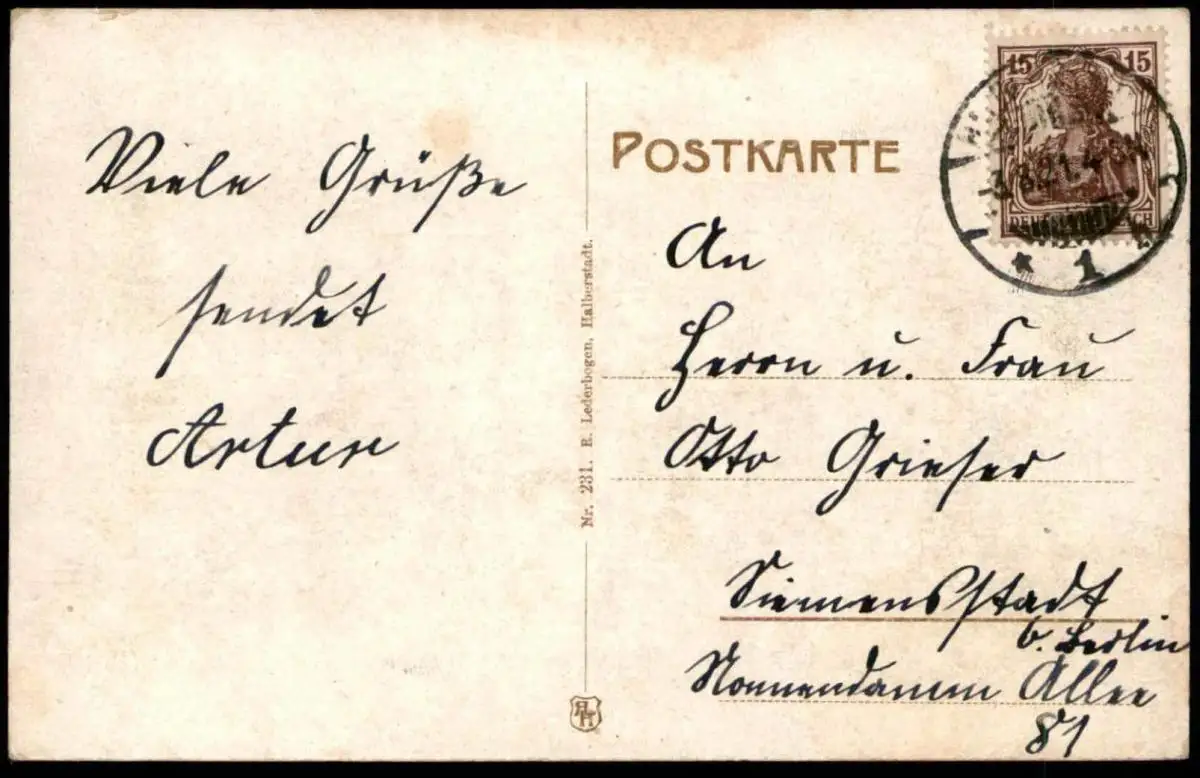 Viele Grüße
sendet
Artur
Nr. 231. R. Lederbogen, Halberstadt.
POSTKARTE
15 15
3.8.21.4-5
* 1
An
Herrn u. Frau
Otto Grieser
Siemensstadt
b. Berlin
Nonnendamm Allee
81